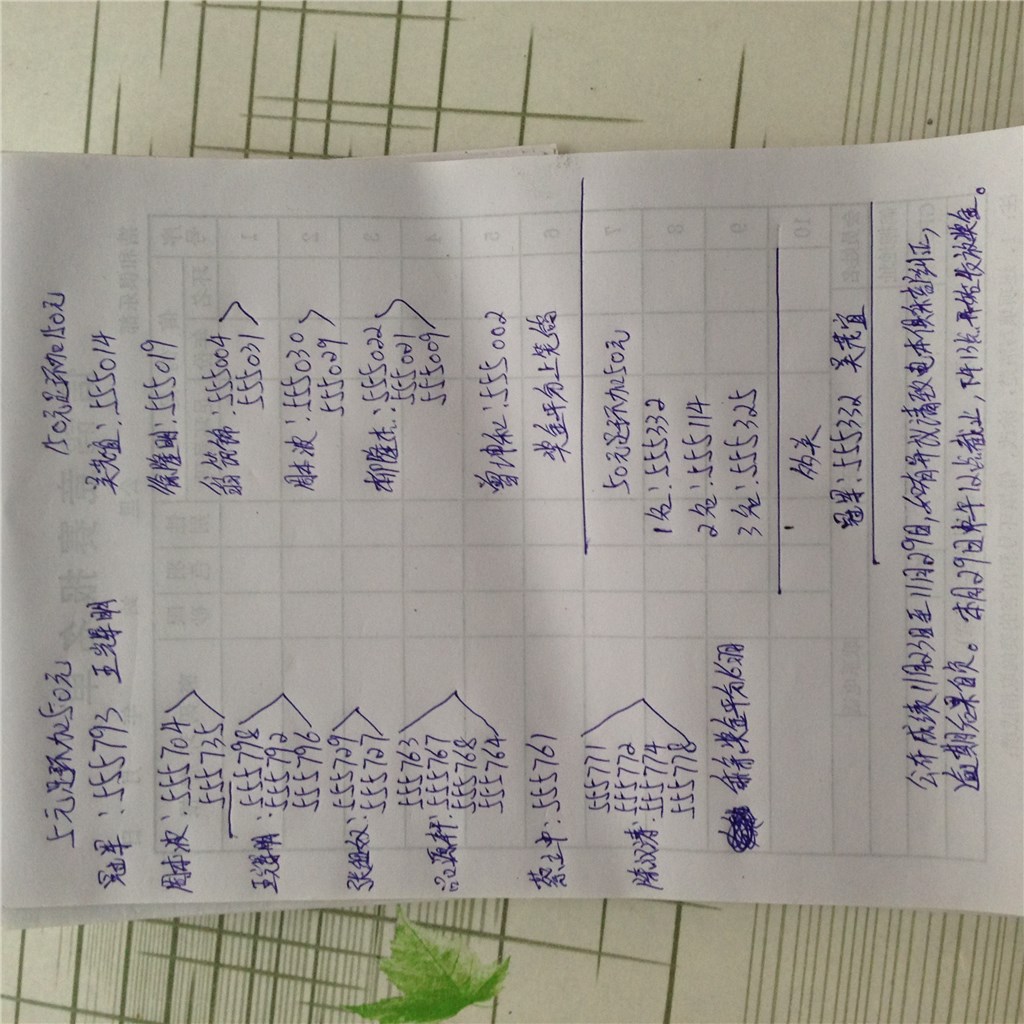 5元足环加50元
冠军:555793 王辉明
周本波:555704
555735
王辉明:555798
555792
555796
张
:555729
555727
555763
:555767
555768
555764
蔡立中:555761
555771
陈汉清:555772
555774
555778
将奖金平分6羽
150元足环加150元
吴光宜:555014
徐隆明:555019
翁
:555004
555031
周本波:555030
555029
柳隆杰:555022
555001
555009
曾坤松:555002
奖金平分上笼鸽
50元足环加50元
1名:555332
2名:555114
3名:555325
外关
冠军:555332 吴光宜
公布成绩11月23日至11月29日,如有异议请致电本俱乐部纠正,
逾期后果自负。本月29日中午12点截止,下午13点开始收放奖金。